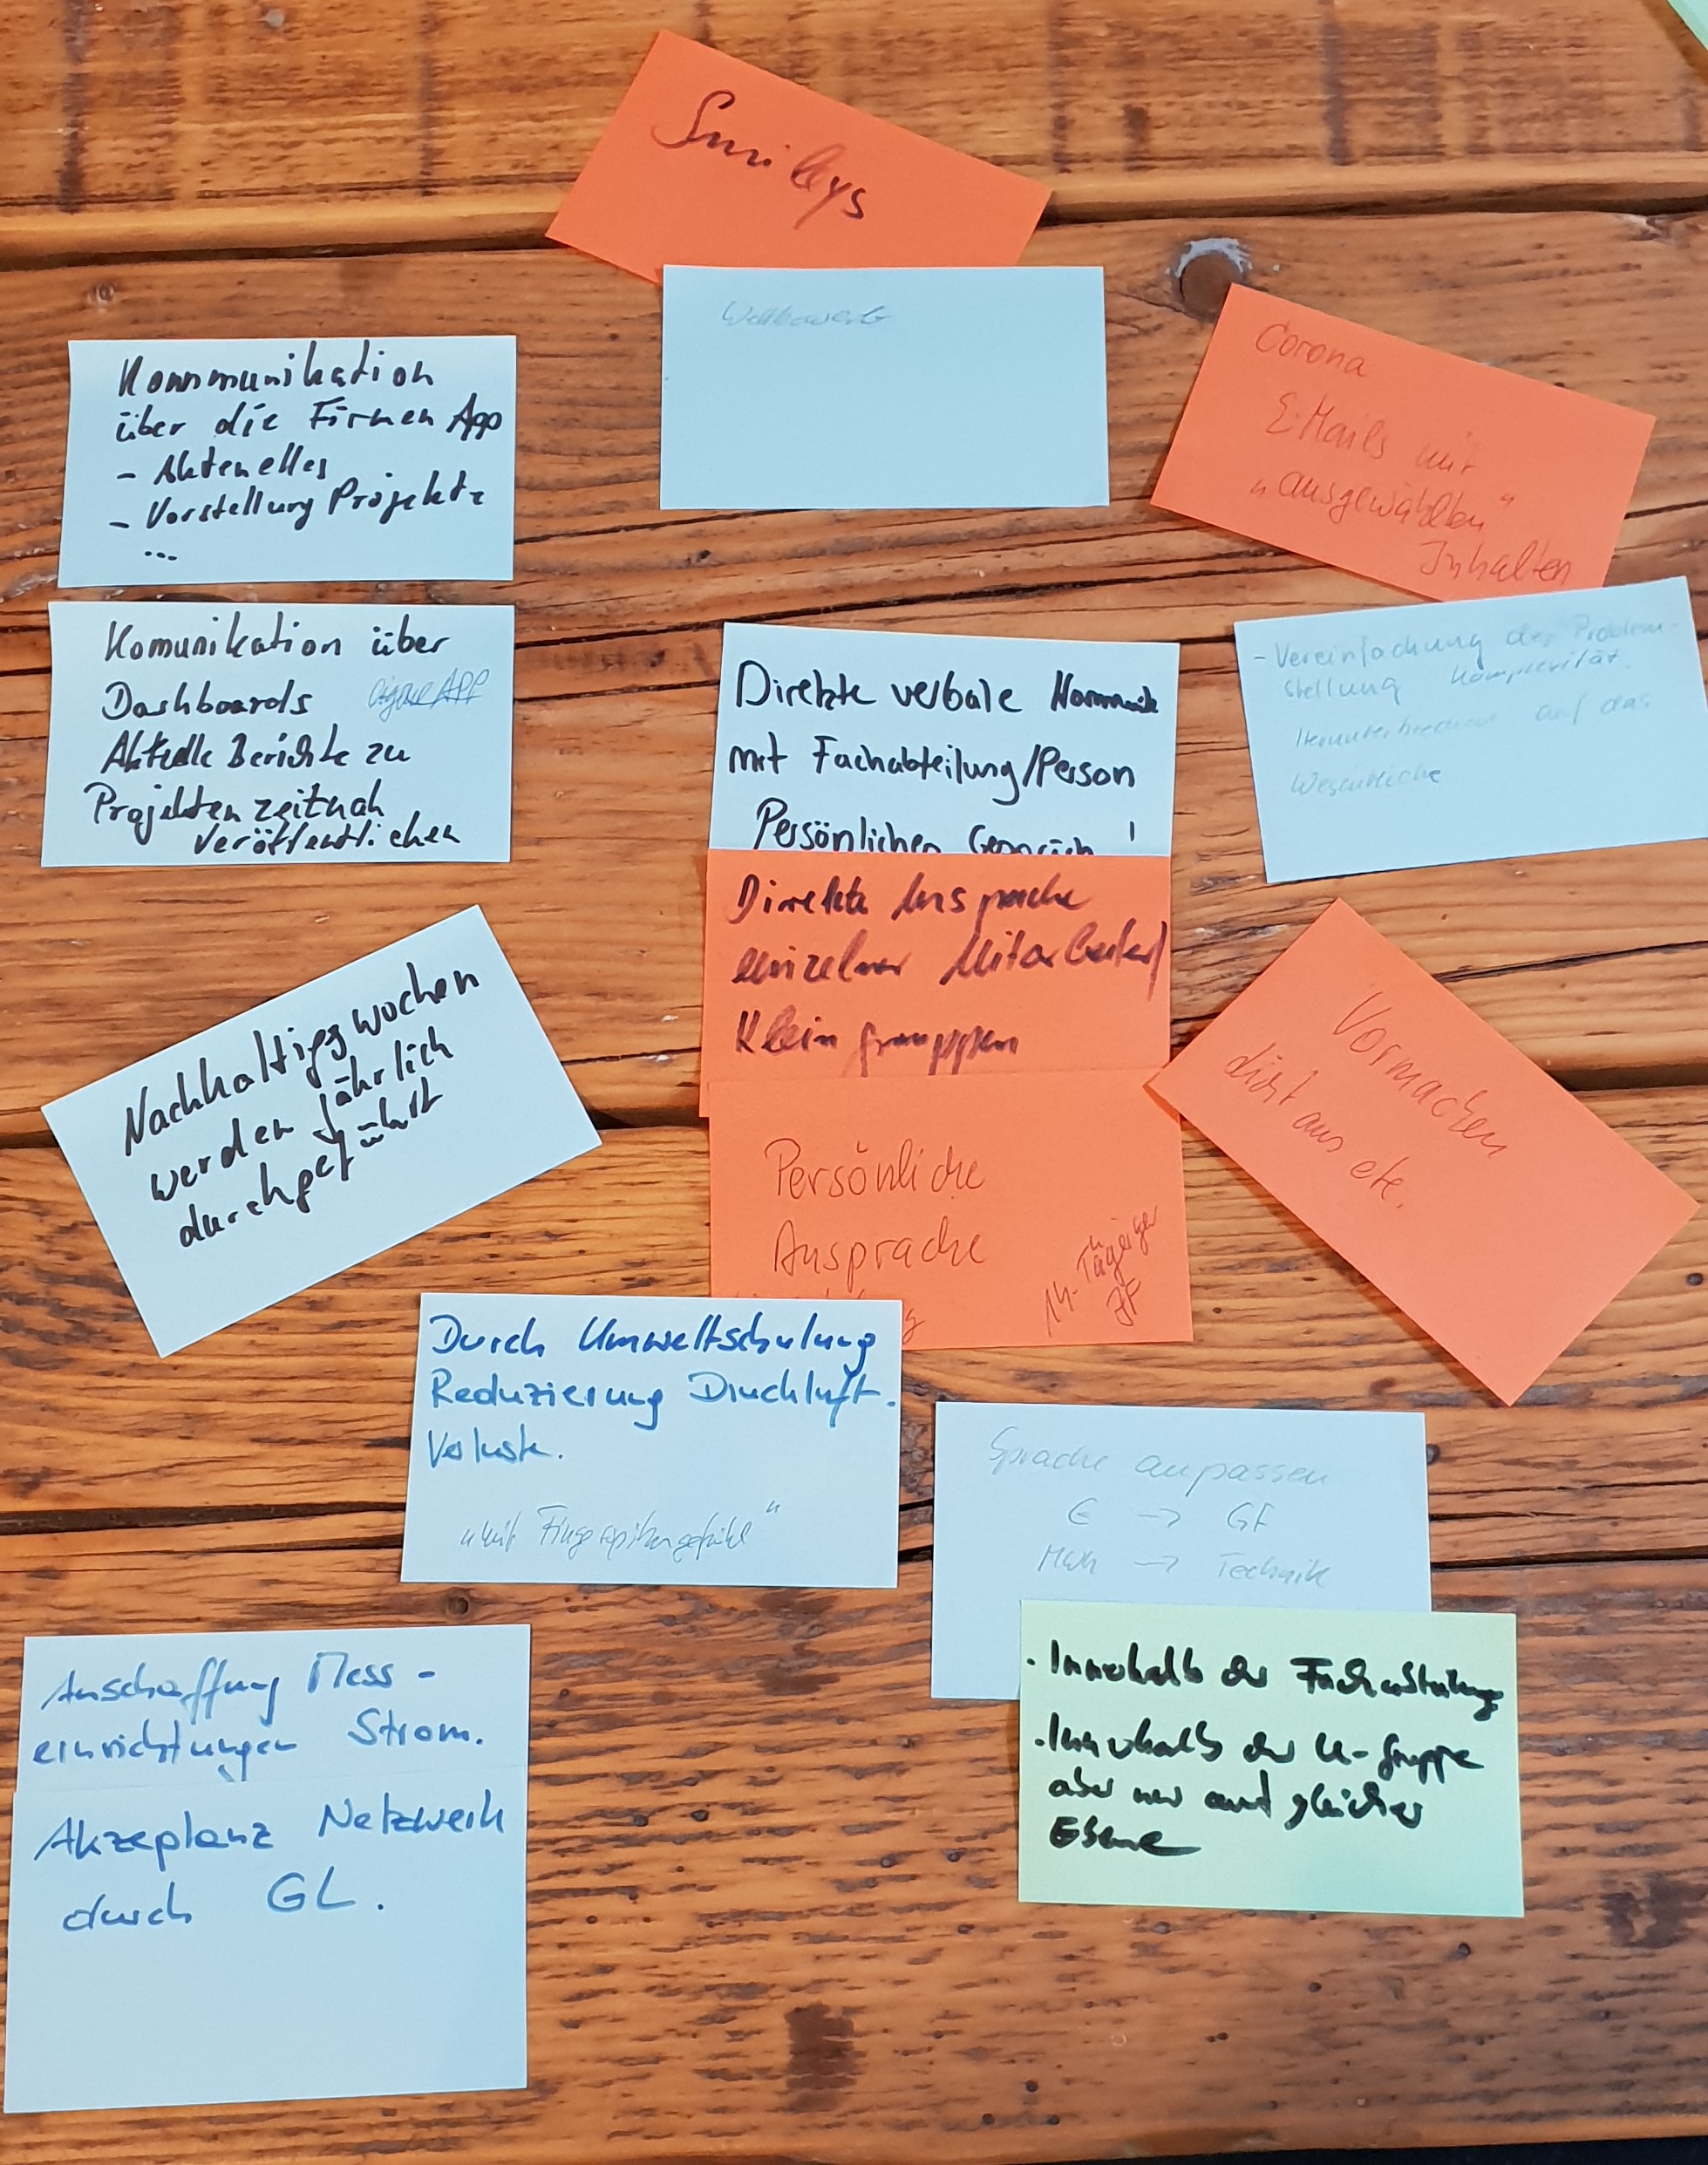 Smileys
Wettbewerb
Corona
E-Mails mit
"ausgewählten"
Inhalten
Kommunikation
über die Firmen App
- Aktuelles
- Vorstellung Projekte
...
Komunikation über
Dashboards
Aktuelle Berichte zu
Projekten zeitnah
veröffentlichen
- Vereinfachung der Problem-
stellung Komplexität.
Herunterbrechen auf das
Wesentliche
Direkte verbale
mit Fachabteilung/Person
Persönlichen Gespräch !
Direkte Ansprache
einzelner Mitarbeiter/
Kleingruppen
Nachhaltigswochen
werden jährlich
durchgeführt
Vormachen
Licht aus etc.
Persönliche
Ansprache
14-Tägiger
JF
Durch Umweltschulung
Reduzierung Druckluft.
Verluste.
"mit Fingerspitzengefühl"
Sprache anpassen
€ -> GF
MWh -> Technik
Anschaffung Mess-
einrichtungen Strom.
Akzeptanz Netzwerk
durch GL.
· Innerhalb der
· Innerhalb der U-Gruppe
aber nur auf gleicher
Ebene